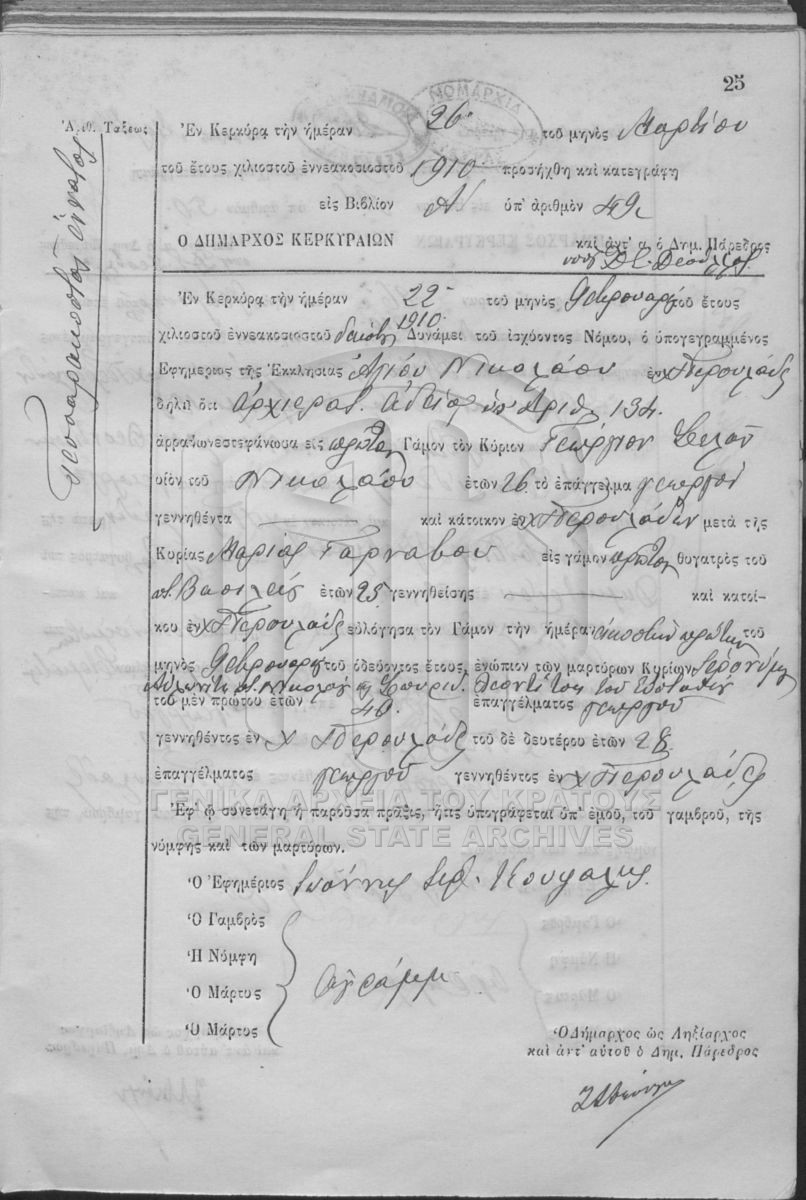 25
ΝΟΜΑΡΧΙΑ
Ἀριθ. Τάξεως
Τεσσαρακοστὸν ἔννατον
Ἐν Κερκύρᾳ τὴν ἡμέραν 26 τοῦ μηνὸς Μαρτίου
τοῦ ἔτους χιλιοστοῦ ἐννεακοσιοστοῦ 1910 προσήχθη καὶ κατεγράφη
εἰς Βιβλίον Α' ὑπ' ἀριθμὸν 49
Ο ΔΗΜΑΡΧΟΣ ΚΕΡΚΥΡΑΙΩΝ καὶ ἀντ' α. ὁ Δημ. Πάρεδρος
Ἐν Κερκύρᾳ τὴν ἡμέραν 22 τοῦ μηνὸς Φεβρουαρίου τοῦ ἔτους
χιλιοστοῦ ἐννεακοσιοστοῦ δεκάτου 1910. Δυνάμει τοῦ ἰσχύοντος Νόμου, ὁ ὑπογεγραμμένος
Ἐφημέριος τῆς Ἐκκλησίας Ἁγίου Νικολάου ἐν χ Περουλάδες
δηλῶ ὅτι Ἀρχιερατ. ἀδείας ὑπ' Ἀριθ. 134.
ἀρραβωνεστεφάνωσα εἰς πρῶτον Γάμον τὸν Κύριον Γεώργιον
υἱὸν τοῦ Νικολάου ἐτῶν 26 τὸ ἐπάγγελμα γεωργοῦ
γεννηθέντα — καὶ κάτοικον ἐν χ Περουλάδων μετὰ τῆς
Κυρίας Μαρίας Γαρνάβου εἰς γάμον πρῶτον θυγατρὸς τοῦ
Βασιλείου ἐτῶν 25 γεννηθείσης — καὶ κατοί-
κου ἐν χ Περουλάδες εὐλόγησα τὸν Γάμον τὴν ἡμέραν εἰκοστὴν πρώτην τοῦ
μηνὸς Φεβρουαρίου τοῦ ὁδεύοντος ἔτους, ἐνώπιον τῶν μαρτύρων Κυρίων Ἱερωνύμου
Αὐλωνίτη Νικολάου Σπυρίδ. τοῦ Εὐσταθίου
τοῦ μὲν πρώτου ἐτῶν 40. ἐπαγγέλματος γεωργοῦ
γεννηθέντος ἐν χ Περουλάδες τοῦ δὲ δευτέρου ἐτῶν 28
ἐπαγγέλματος γεωργοῦ γεννηθέντος ἐν χ Περουλάδες
ΓΕΝΙΚΑ ΑΡΧΕΙΑ ΤΟΥ ΚΡΑΤΟΥΣ
Ἐφ' ᾧ συνετάγη ἡ παροῦσα πρᾶξις, ἥτις ὑπογράφεται ὑπ' ἐμοῦ, τοῦ γαμβροῦ, τῆς
GENERAL STATE ARCHIVES
νύμφης καὶ τῶν μαρτύρων.
Ὁ Ἐφημέριος Ἰωάννης
Ὁ Γαμβρὸς
Ἡ Νύμφη
Ὁ Μάρτυς ἀγράμμ
Ὁ Μάρτυς
Ὁ Δήμαρχος ὡς Ληξίαρχος
καὶ ἀντ' αὐτοῦ ὁ Δημ. Πάρεδρος